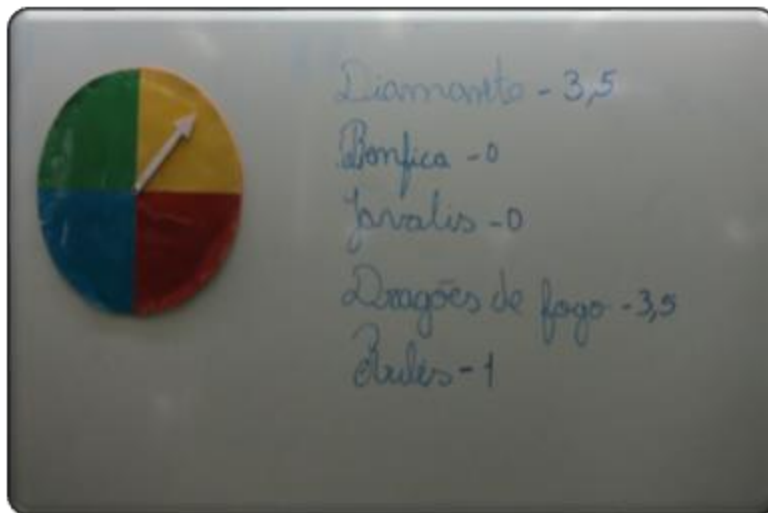 Diamante - 3,5
Benfica - 0
Javalis - 0
Dragões de fogo - 3,5
- 1